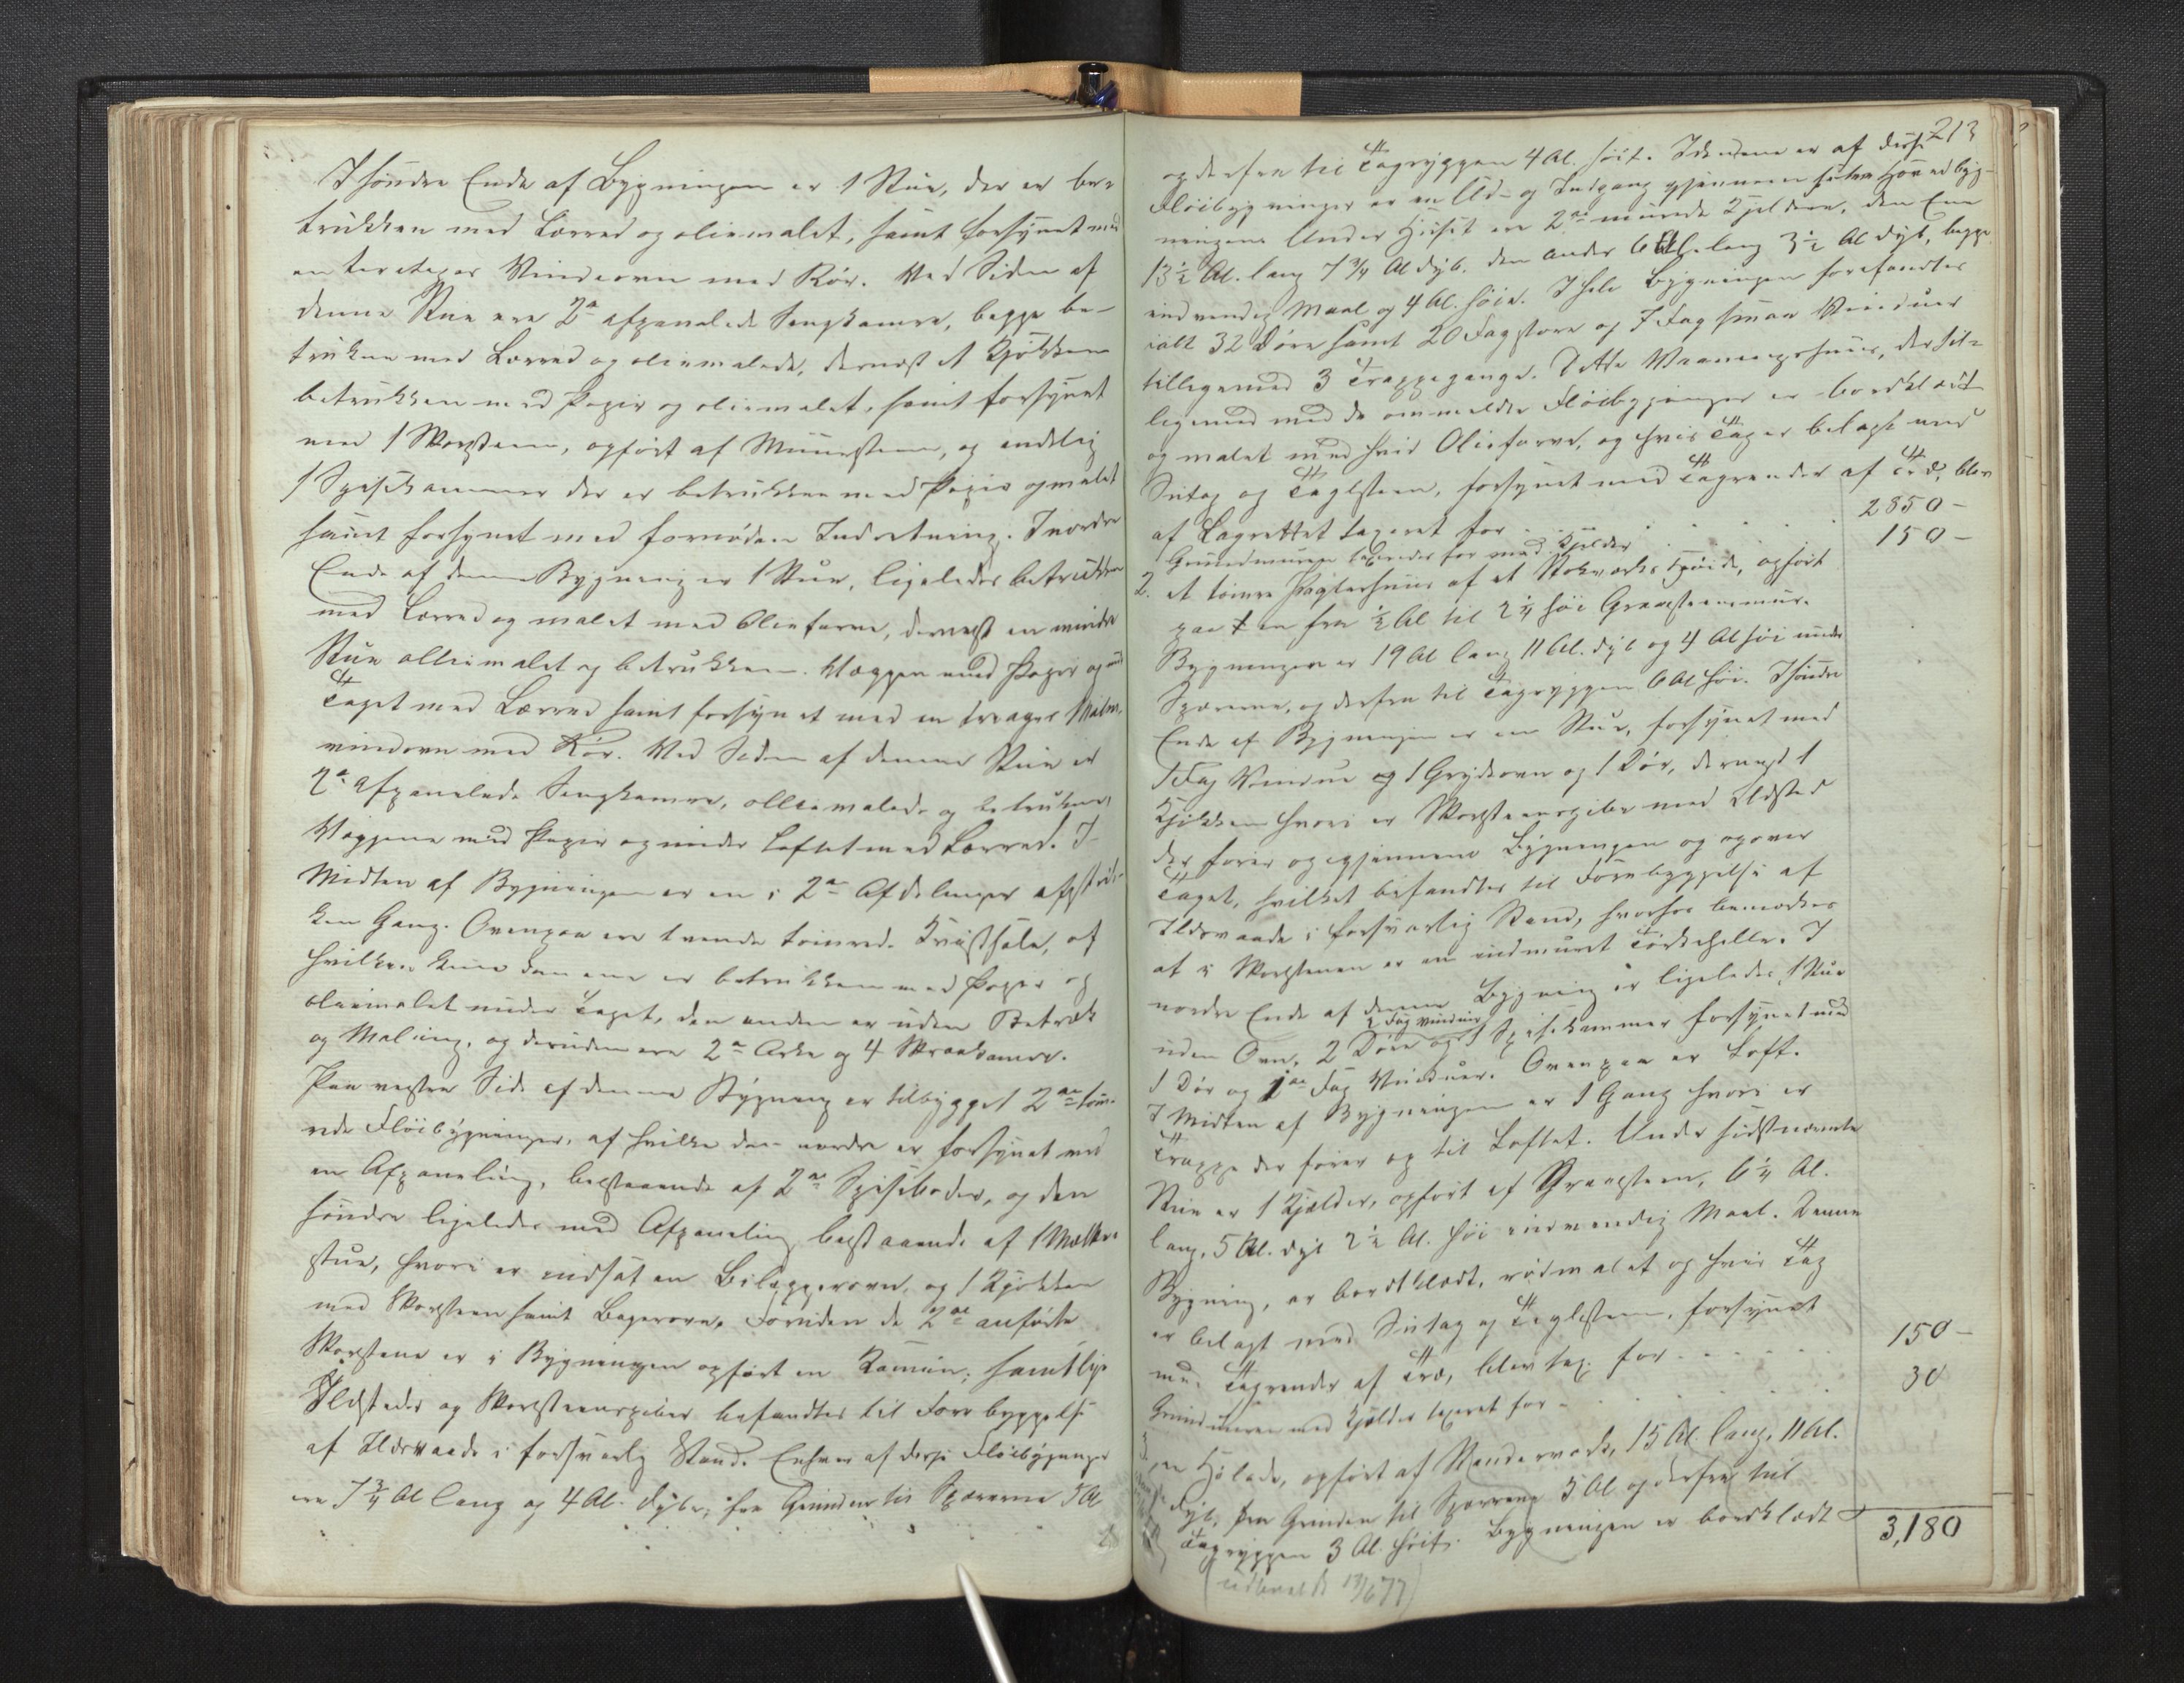 I søndre Ende af Bygningen er 1 Stue, der er be-
trukken med Lærred og oliemalet, samt forsynet med
en toetages Vindovn med Rør. Ved Siden af
denne Stue ere 2de afpanelede Sengkamre, begge be-
trukne med Lærred og oliemalede, dernæst et Kjøkken
betrukken med Papir og oliemalet, samt forsynet
med 1 Skorsteen, opført af Muursteen, og endelig
1 Spisekammer der er betrukken med Papir og malet
samt forsynet med fornøden Indretning. I nordre
Ende af denne Bygning er 1 Stue, ligeledes betrukken
med Lærred og malet med Oliefarve, dernæst en mindre
Stue olliemalet og betrukken Væggen med Papir og under
Taget med Lærred samt forsynet med en treetages
vindovn med Rør. Ved Siden af denne Stue er
2de afpanelede Sengkamre, olliemalede og betrukne,
Væggene med Papir og under Loftet med Lærred. I
Midten af Bygningen er en i 2de Afdelinger afstruk-
ken Gang. Ovenpaa ere tvende tømrede Kvistsale, af
hvilke den ene er betrukken med Papir og
oliemalet under Taget, den anden er uden Betræk
og Maling, og desuden ere 2de Arke og 4 Skraakamre.
Paa vestre Side af denne Bygning er tilbygget 2de tøm-
rede Fløibygninger, af hvilke den nordre er forsynet med
en Afpaneling, bestaaende af 2de Spiseboder, og den
søndre ligeledes med Afpaneling bestaaende af 1 Melke-
stue, hvori er indsat en Bilæggerovn, og 1 Kjøkken
med Skorsteen samt Bagerovn. Foruden de 2de anførte
Skorstene er i Bygningen opført en Kamin; samtlige
Ildsteder og Skorsteenspiber befandtes til Forebyggelse
af Ildsvaade i forsvarlig Stand. Enhver af disse Fløibygninger
ere 7 3/4 Al lang og 4 Al. dybe, fra Grunden til Sparrerne 5 Al
213
og derfra til Tagryggen 4 Al. høit. I den ene er af disse
Fløibygninger er en Ud- og Indgang gjennem Hovedbyg-
ningen. Under Huset ere 2de murede Kjeldere, den Ene
13 1/2 Al. lang 7 3/4 Al dyb. den anden 6 Al. lang 3 1/2 Al dyb, begge
indvendig Maal og 4 Al. høie. I hele Bygningen forefandtes
ialt 32 Døre samt 20 Fag store og 7 Fag smaa Vinduer
tilligemed 3 Trappegange. Dette Vaaningshuus, der til-
ligemed med de ommeldte Fløibygninger er bordklædt
og malet med hvid Oliefarve, og hvis Tag er belagt med
Sutag og Taglsteen, forsynet med Tagrender af Træ, blev
af Lagrettet taxeret for . . . . . 2850 -
Grundmuren taxeredes for med Kjelder . . . 150 -
2. et tømre Pagterhuus af et Stokværks Høide, opført
paa en fra 1/2 Al til 2 1/4 høi Graasteensmuur.
Bygningen er 19 Al lang 11 Al. dyb og 4 Al høi under
Sparrerne, og derfra til Tagryggen 6 Al høi. I søndre
Ende af Bygningen er en Stue, forsynet med
1 Fag Vindue og 1 Grydeovn og 1 Dør, dernæst 1
Kjøkken hvori er Skorsteenspibe med Ildsted
der fører op gjennem Bygningen og op over
Taget, hvilket befandtes til Forebyggelse af
Ildsvaade i forsvarlig Stand, hvorhos bemærkes
at i Skorstenen er en indmuret Tørkehelle. I
nordre Ende af denne Bygning er ligeledes 1 Stue
2 Fag vinduer
uden Ovn, 2 Døre og 1 Spisekammer forsynet med
1 Dør og 1 Fag Vinduer. Ovenpaa er Loft.
I Midten af Bygningen er 1 Gang hvori er
Trappe der fører op til Loftet. Under sidstnævnte
Stue er 1 Kjælder, opført af Graasteen, 6 1/4 Al.
lang, 5 Al. dyb 2 1/2 Al. høi indvendig Maal. Denne
Bygning, er bordklædt, rødmalet og hvis Tag
er belagt med Sutag og Taglsteen, forsynet
med Tagrender af Træ, blev tax. for . . . . 150 -
Grundmuren med Kjælder taxeret for . . . . 30
3. en Hølade, opført af Standerværk, 15 Al. lang, 11 Al.
dyb, fra Grunden til Sparrerne 5 Al og derfra til
Tagryggen 3 Al. høit. Bygningen er bordklædt
3,180